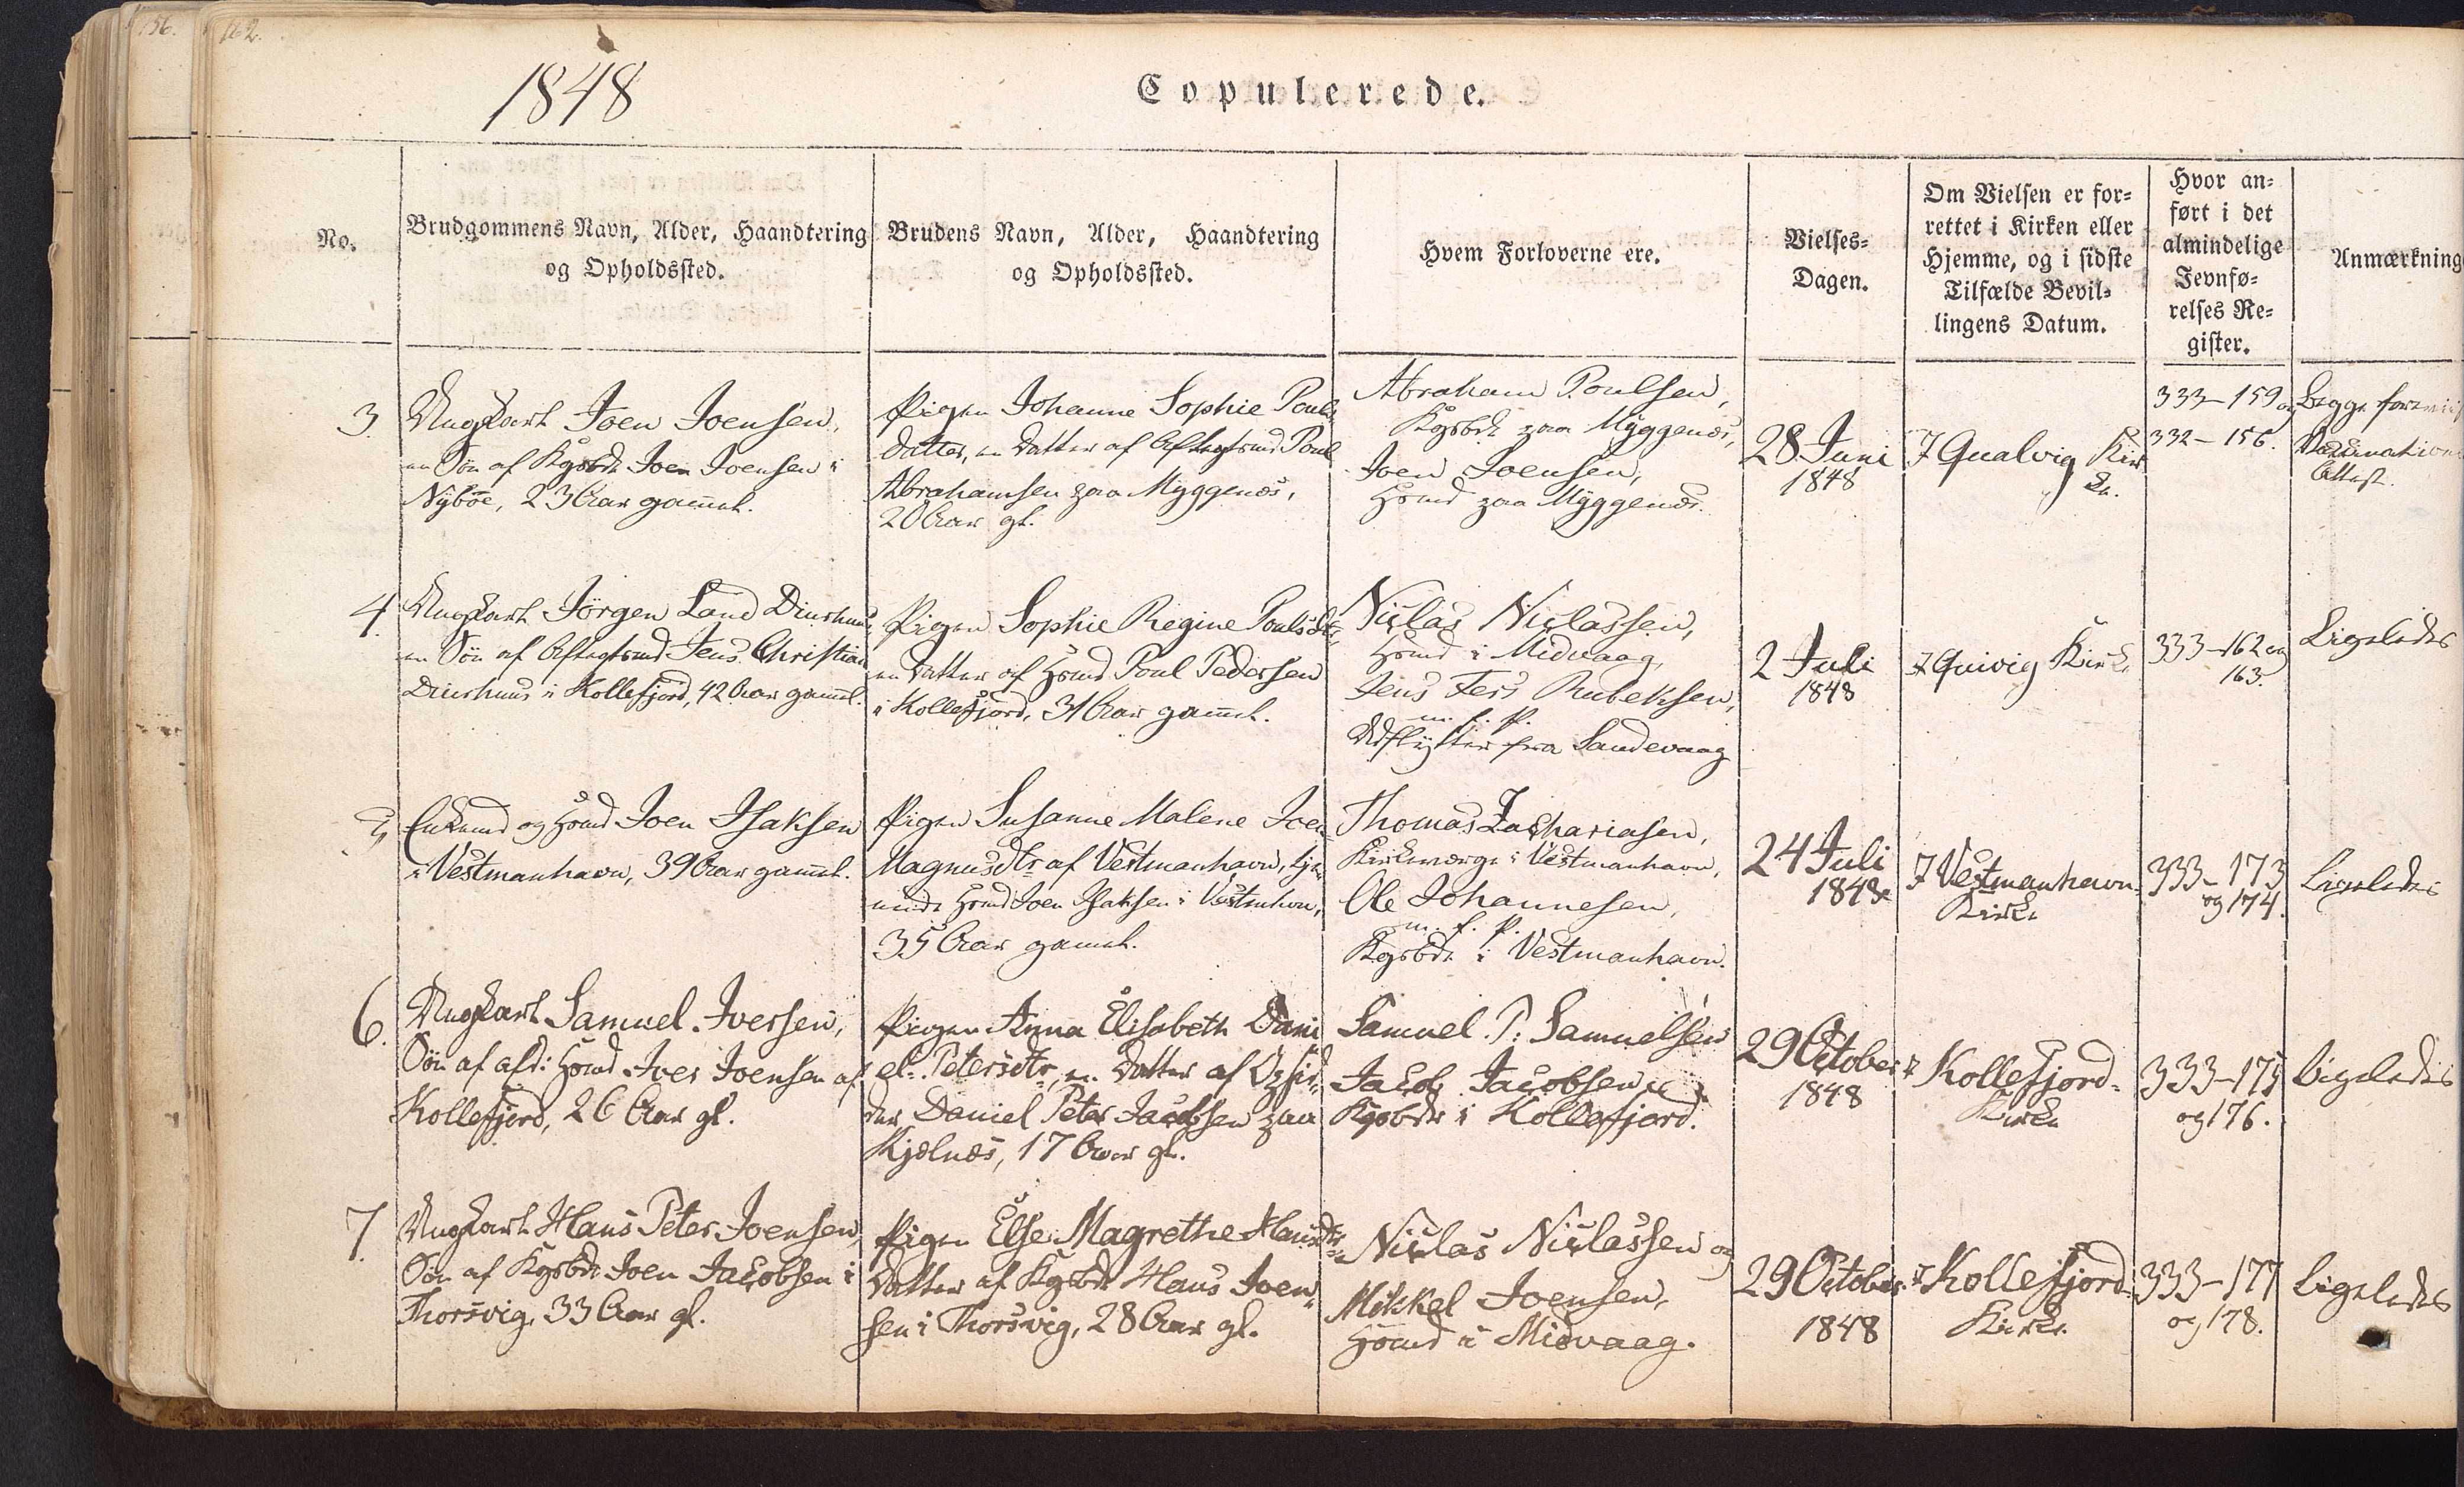 156.
162.
1848
Copulerede.
No.
Brudgommens Navn, Alder, Haandtering
og Opholdssted.
Brudens Navn, Alder, Haandtering
og Opholdssted.
Hvem Forloverne ere.
Vielses-
Dagen.
Om Vielsen er for-
rettet i Kirken eller
Hjemme, og i sidste
Tilfælde Bevil-
lingens Datum.
Hvor an-
ført i det
almindelige
Jevnfø-
relses Re-
gister.
Anmærkning
3.
Ungkarl Joen Joensen,
en Søn af Kgsbde Joen Joensen i
Nyböe, 23 Aar gammel.
Pigen Johanne Sophie Pouls
datter, en Datter af Aftegtsmd Poul
Abrahamsen paa Myggenæs,
20 Aar gl.
Abraham Poulsen,
Kgsbde paa Myggenæs,
Joen Joensen,
Hsmd paa Myggenæs.
28 Juni
1848
I Qualvig Kir
ke.
333-159 og
332-156.
Begge
Vaccinations
Attest.
4.
Ungkarl Jörgen Land Diurhuus
en Søn af Aftegtsmd Jens Christian
Diurhuus i Kollefjord, 42 Aar gammel.
Pigen Sophie Regine Poulsdtr,
en Datter af Hsmd Poul Pedersen
i Kollefjord, 31 Aar gammel.
Niclas Niclassen,
Hsmd i Midvaag,
Jens Rubeksen,
m. f. P.
Udflytter fra Sandevaag
2 Juli
1848
I Quivig Kirke
333-162 og
163.
Ligeledes
5
Enkemd og Hsmd Joen Isaksen
i Vestmanhavn, 39 Aar gammel.
Pigen Susanne Malene Joen
Magnusdtr af Vestmanhavn, tje-
nende Hsmd Joen Isaksen i Vestmhvn,
35 Aar gammel.
Thomas Zachariasen,
Kirkeværge i Vestmanhavn,
Ole Johannesen,
m. f. P.
Kgsbde i Vestmanhavn.
24 Juli
1848
I Vestmanhavn-
Kirke
333-173
og 174.
Ligeledes
6.
Ungkarl Samuel Iversen,
Søn af afd: Hsmd Iver Joensen af
Kollefjord, 26 Aar gl.
Pigen Anna Elisabeth Dani
el Petersdtr, en Datter af Opsid-
der Daniel Peter Jacobsen paa
Kjælnæs, 17 Aar gl.
Samuel P: Samuelsen
Jacob Jacobsen
Kgsbdr i Kollefjord.
29 October
1848
I Kollefjord-
Kirke
333-175
og 176.
Ligeledes
7.
Ungkarl Hans Peter Joensen,
Søn af Kgsbde Joen Jacobsen i
Thorsvig, 33 Aar gl.
Pigen Else Magrethe Hansdtr
Datter af Kgsbde Hans Joen-
sen i Thorsvig, 28 Aar gl.
Niclas Niclassen og
Mikkel Joensen,
Hsmd i Midvaag.
29 October
1848
I Kollefjord-
Kirke.
333-177
og 178.
Ligeledes